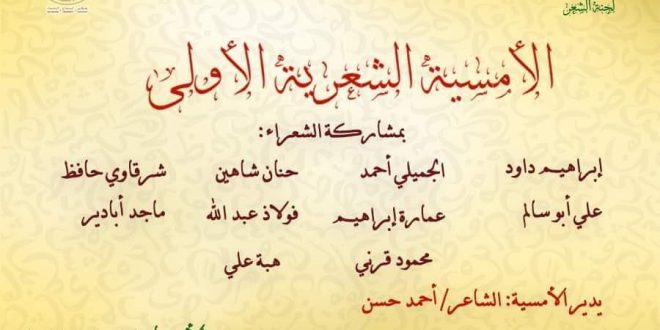 لجنة الشعر
الأمسية الشعرية الأولى
بمشاركة الشعراء:
إبراهيم داود الجميلي أحمد حنان شاهين شرقاوي حافظ
علي أبو سالم عمارة إبراهيم فولاذ عبد الله ماجد أبادير
محمود قرني هبة علي
يدير الأمسية: الشاعر/ أحمد حسن